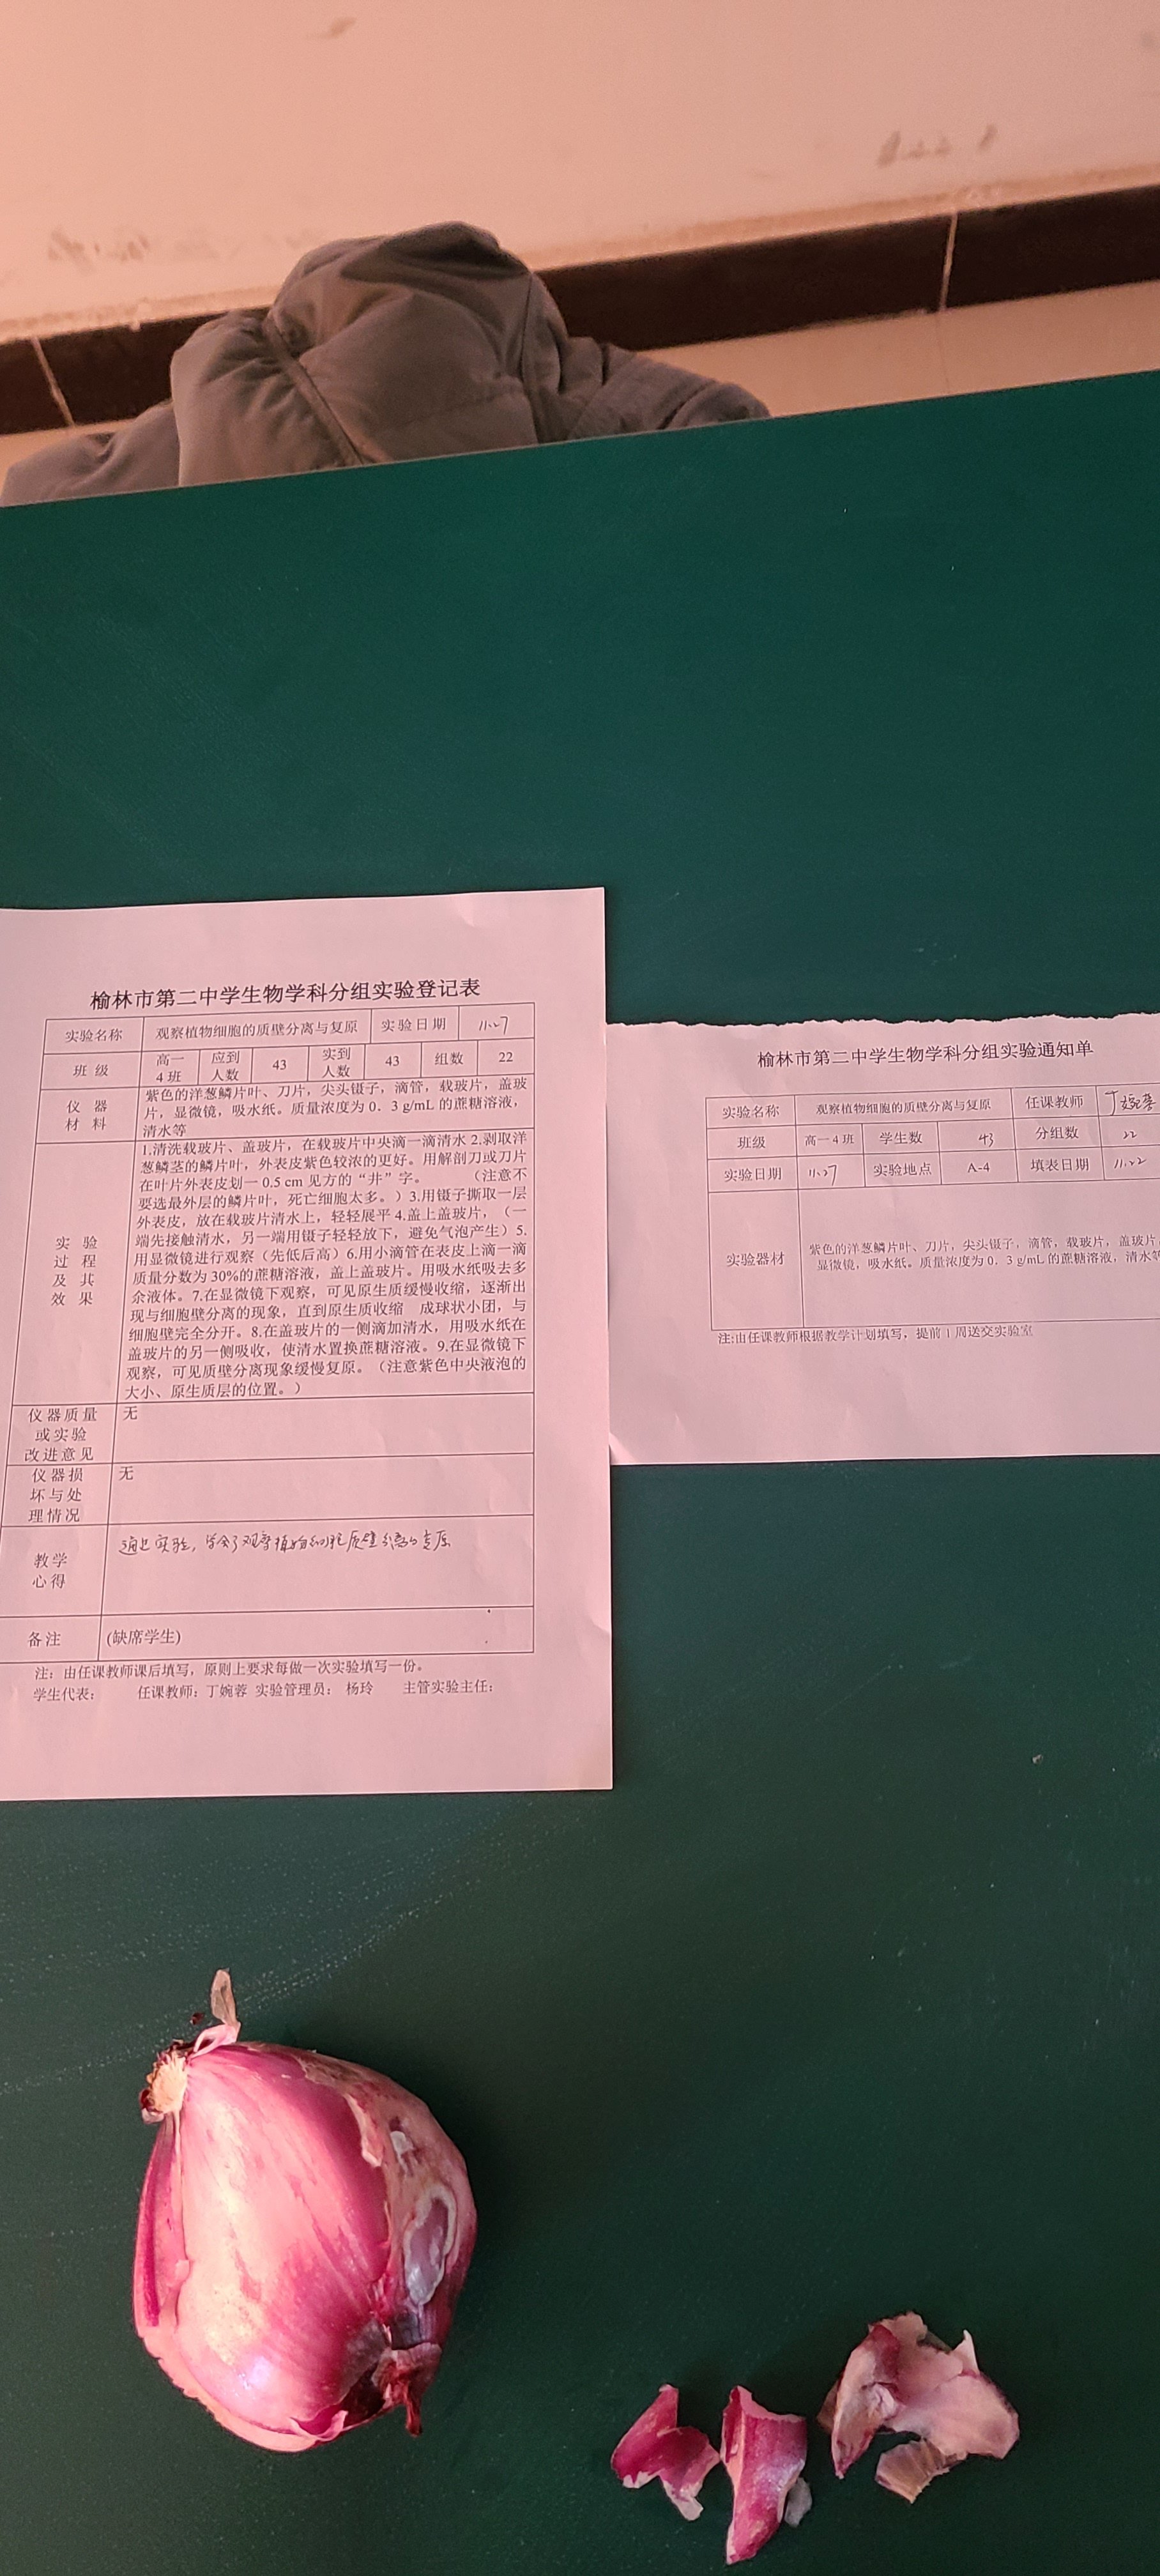 榆林市第二中学生物学科分组实验登记表
实验名称 观察植物细胞的质壁分离与复原 实验日期 11.27
班级 高一4班 应到人数 43 实到人数 43 组数 22
仪器材料
紫色的洋葱鳞片叶、刀片，尖头镊子，滴管，载玻片，盖玻
片，显微镜，吸水纸。质量浓度为0.3 g/mL 的蔗糖溶液，
清水等
实验过程及其效果
1.清洗载玻片、盖玻片，在载玻片中央滴一滴清水 2.剥取洋
葱鳞茎的鳞片叶，外表皮紫色较浓的更好。用解剖刀或刀片
在叶片外表皮划一 0.5 cm 见方的“井”字。 （注意不
要选最外层的鳞片叶，死亡细胞太多。）3.用镊子撕取一层
外表皮，放在载玻片清水上，轻轻展平 4.盖上盖玻片，（一
端先接触清水，另一端用镊子轻轻放下，避免气泡产生）5.
用显微镜进行观察（先低后高）6.用小滴管在表皮上滴一滴
质量分数为 30%的蔗糖溶液，盖上盖玻片。用吸水纸吸去多
余液体。7.在显微镜下观察，可见原生质缓慢收缩，逐渐出
现与细胞壁分离的现象，直到原生质收缩 成球状小团，与
细胞壁完全分开。8.在盖玻片的一侧滴加清水，用吸水纸在
盖玻片的另一侧吸收，使清水置换蔗糖溶液。9.在显微镜下
观察，可见质壁分离现象缓慢复原。（注意紫色中央液泡的
大小、原生质层的位置。）
仪器质量或实验改进意见 无
仪器损坏与处理情况 无
教学心得 通过实验，学会了观察植物细胞质壁分离与复原
备注 (缺席学生)
注：由任课教师课后填写，原则上要求每做一次实验填写一份。
学生代表： 任课教师：丁婉蓉 实验管理员： 杨玲 主管实验主任：
榆林市第二中学生物学科分组实验通知单
实验名称 观察植物细胞的质壁分离与复原 任课教师 丁婉蓉
班级 高一4班 学生数 43 分组数 22
实验日期 11.27 实验地点 A-4 填表日期 11.22
实验器材
紫色的洋葱鳞片叶、刀片，尖头镊子，滴管，载玻片，盖玻片，
显微镜，吸水纸。质量浓度为0.3 g/mL 的蔗糖溶液，清水等
注:由任课教师根据教学计划填写，提前1周送交实验室